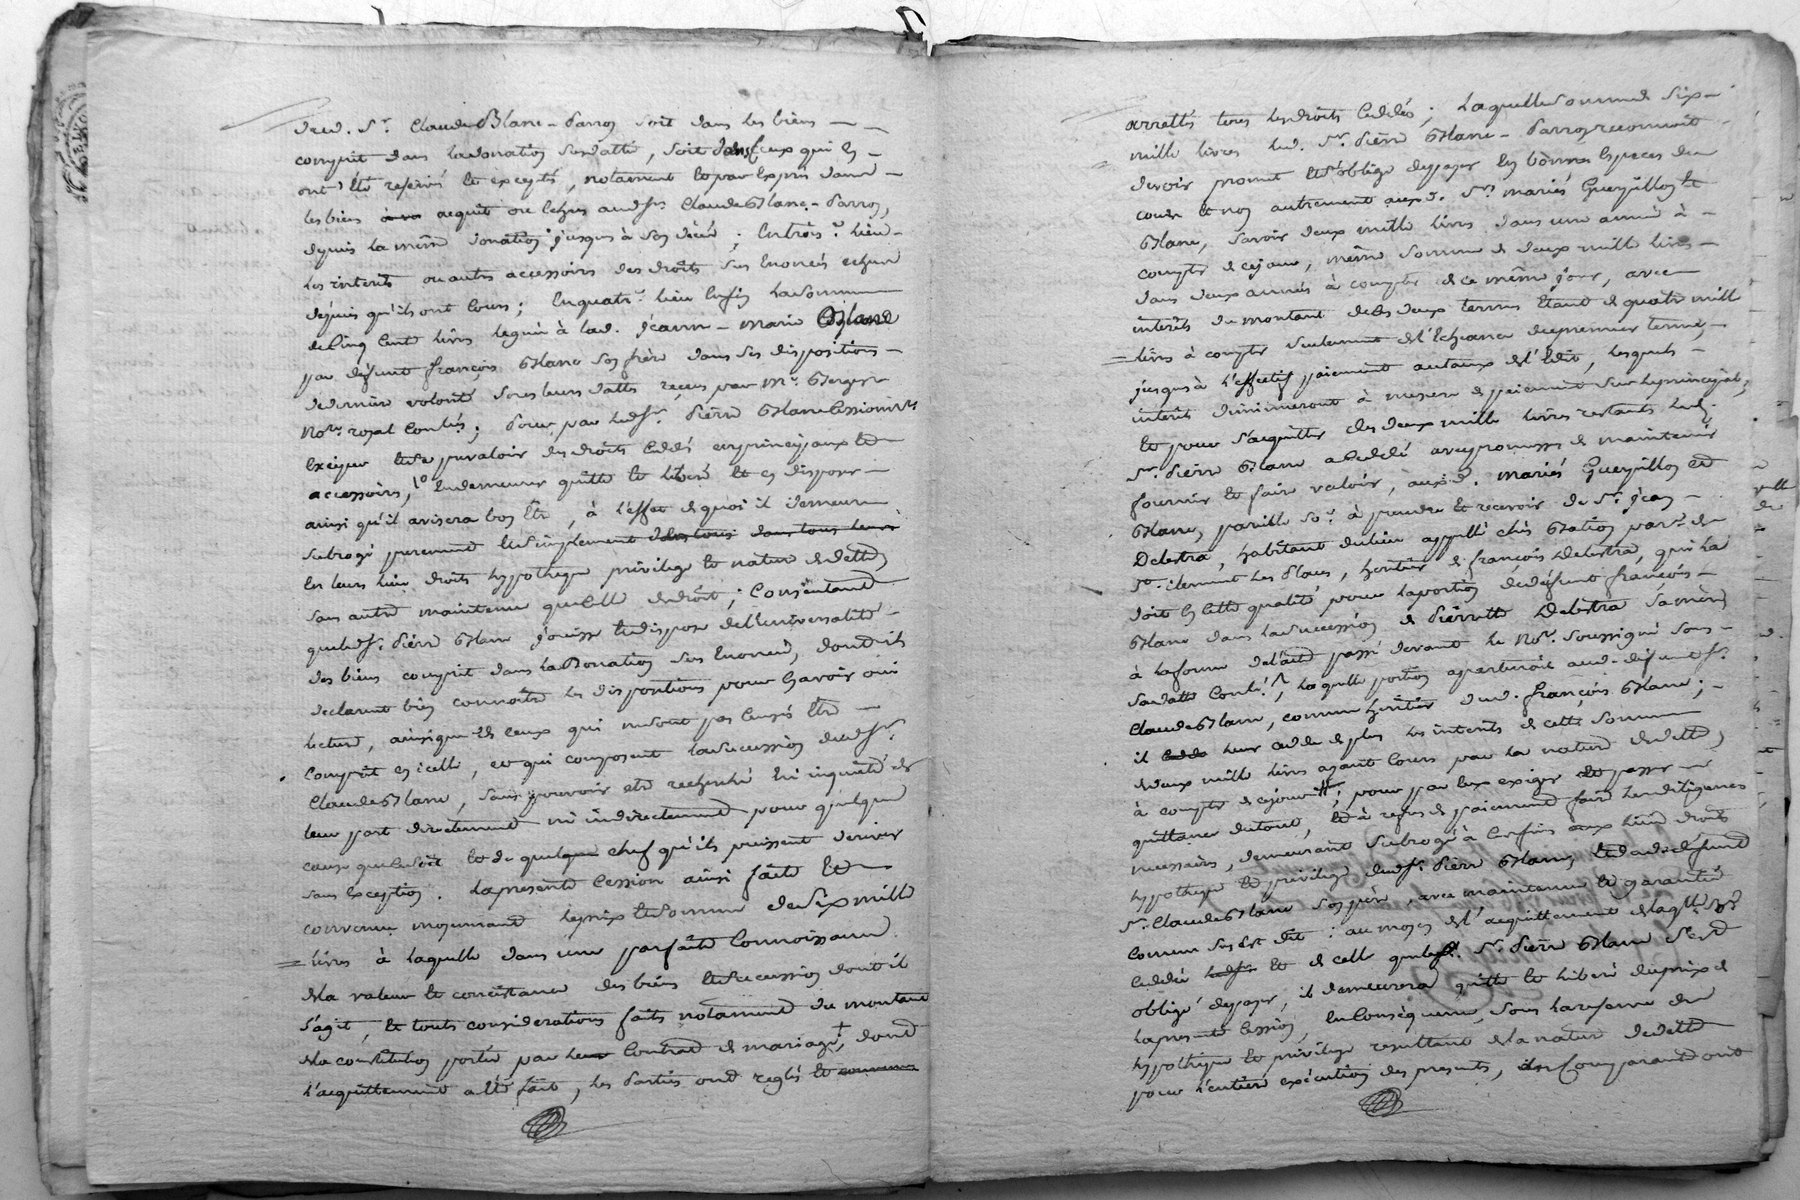 dud. Sr. Claude Blanc-Parroy soit dans les biens
compris dans la donation susdatte, soit dans ceux qui en
ont été reservés et exceptés, notament et par exprès dans
les biens acquis ou echus audsr. Claude Blanc-Parroy,
depuis la même donation jusques à son décès; en trois.e lieu
les interets ou autres accessoires des droits sus enoncés echus
depuis qu'ils ont cours; en quatr.e lieu enfin la somme
de cinq cent livres leguée à lad. jeanne-marie Blanc
par défunt françois Blanc son frère dans ses dispositions
de dernière volonté sous leurs dattes, reçues par Me. Berger
Nore. royal ; pour par ledsr. Pierre Blanc cessionnre
exiger et se prevaloir des droits cédés en principaux et
accessoires, en demeurer quitte et liberé et en disposer
ainsi qu'il avisera bon etre, à l'effet de quoi il demeure
subrogé purement et simplement dans tous leurs
en leurs lieu droits hypotheque privilege et nature de dette
sans autre maintenue que celle de droit; consentant
que ledsr. Pierre Blanc jouisse et dispose de l'universalité
des biens compris dans la Donation sus enoncée, dont ils
declarent bien connoitre les dispositions pour en avoir oui
lecture, ainsi que de ceux qui ne sont pas censés etre
compris en icelle, et qui composent la succession dudsr.
Claude Blanc, sans pouvoir etre recherché ni inquieté de
leur part directement ni indirectement pour quelque
cause que ce soit et de quelque chef qu'ils puissent deriver
sans exception. La presente cession ainsi faite et
convenue moyennant le prix et somme de six mille
livres à laquelle dans une parfaite connoissance
de la valeur et consistance des biens et succession dont il
s'agit, et touts considerations faits notament du montant
de la constitution portée par leur contrat de mariage, dont
l'acquittement a été fait, les Parties ont reglés et comme
arrettés tous les droits cédés; laquelle somme de six
mille livres led. Sr. Pierre Blanc-Parroy reconnoit
devoir promet et s'oblige de payer en bonnes especes de
cours et non autrement auxd. Srs. mariés Guerpillon et
Blanc, savoir deux mille livres dans une année à
compter de ce jour, même somme de deux mille livres
dans deux années à compter de ce même jour, avec
interets du montant de ces deux termes etant de quatre mille
livres à compter seulement de l'echeance du premier terme,
jusques à l'effectif paiement au taux de l'edit, lesquels
interets diminueront à mesure de paiement sur le principal;
et pour s'acquitter des deux mille livres restants led.
Sr. Pierre Blanc a cedé avec promesses de maintenir
fournir et faire valoir, auxd. mariés Guerpillon et
Blanc, pareille so.e à prendre et recevoir de Sr. jean
Delestra, habitant du lieu appellé chés Bation parse. de
St. clement les Places, heritier de françois Delestra, qui la
doit en cette qualité pour la portion de defunt françois
Blanc dans la succession de Pierrette Delestra sa mère
à la forme de l'acte passé devant le Nore. soussigné sous
sa datte , laquelle portion apartenoit aud. defunt sr.
Claude Blanc, comme heritier dud. françois Blanc;
il leur cede de plus les interets de cette somme
de deux mille livres ayant cours par la nature de dette,
à compter de ce jour; pour par eux exiger passer
quittance du tout, et à refus de paiement faire les diligences
necessaires, demeurant subrogé à ces fins aux lieu droits
hypotheque et privilege dudsr. Pierre Blanc, et dud. defunt
sr. Claude Blanc son père, avec maintenue et garantie
comme sus est dit: au moyen de l'acquittement de laqlle. so.e
cedée et de celle que ledsr. Sr. Pierre Blanc s'est
obligé de payer, il demeurera quitte et liberé du prix de
la presente cession, en consequence, sous la reserve de
hypotheque et privilege resultant de la nature de dette
pour l'entiere exécution des presentes, les comparants ont